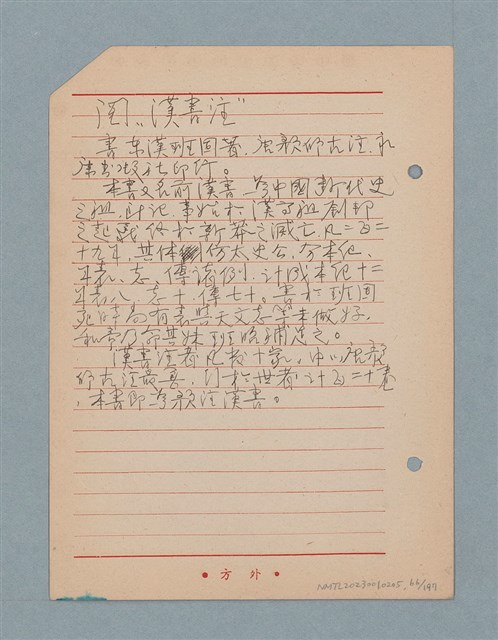 閱"漢書注"
書東漢班固著,唐顏師古注,永
康出版社印行。
本書又名前漢書,為中國斷代史
之祖,記事始於漢高祖劉邦
之起 終於新莽之滅亡,凡二百二
十九年,其体例仿太史公,分本紀、
年表、志、傳諸例,計成本紀十二
年表八、志十、傳七十。書於班固
死時尚有表暨天文志等未做好,
和帝乃命其妹班昭補足之。
漢書注者凡數十家,中以唐顏
師古注最善,行於世者計百二十卷
,本書即為顏注漢書。
• 方 外 •
NMTL20230010205 66/197